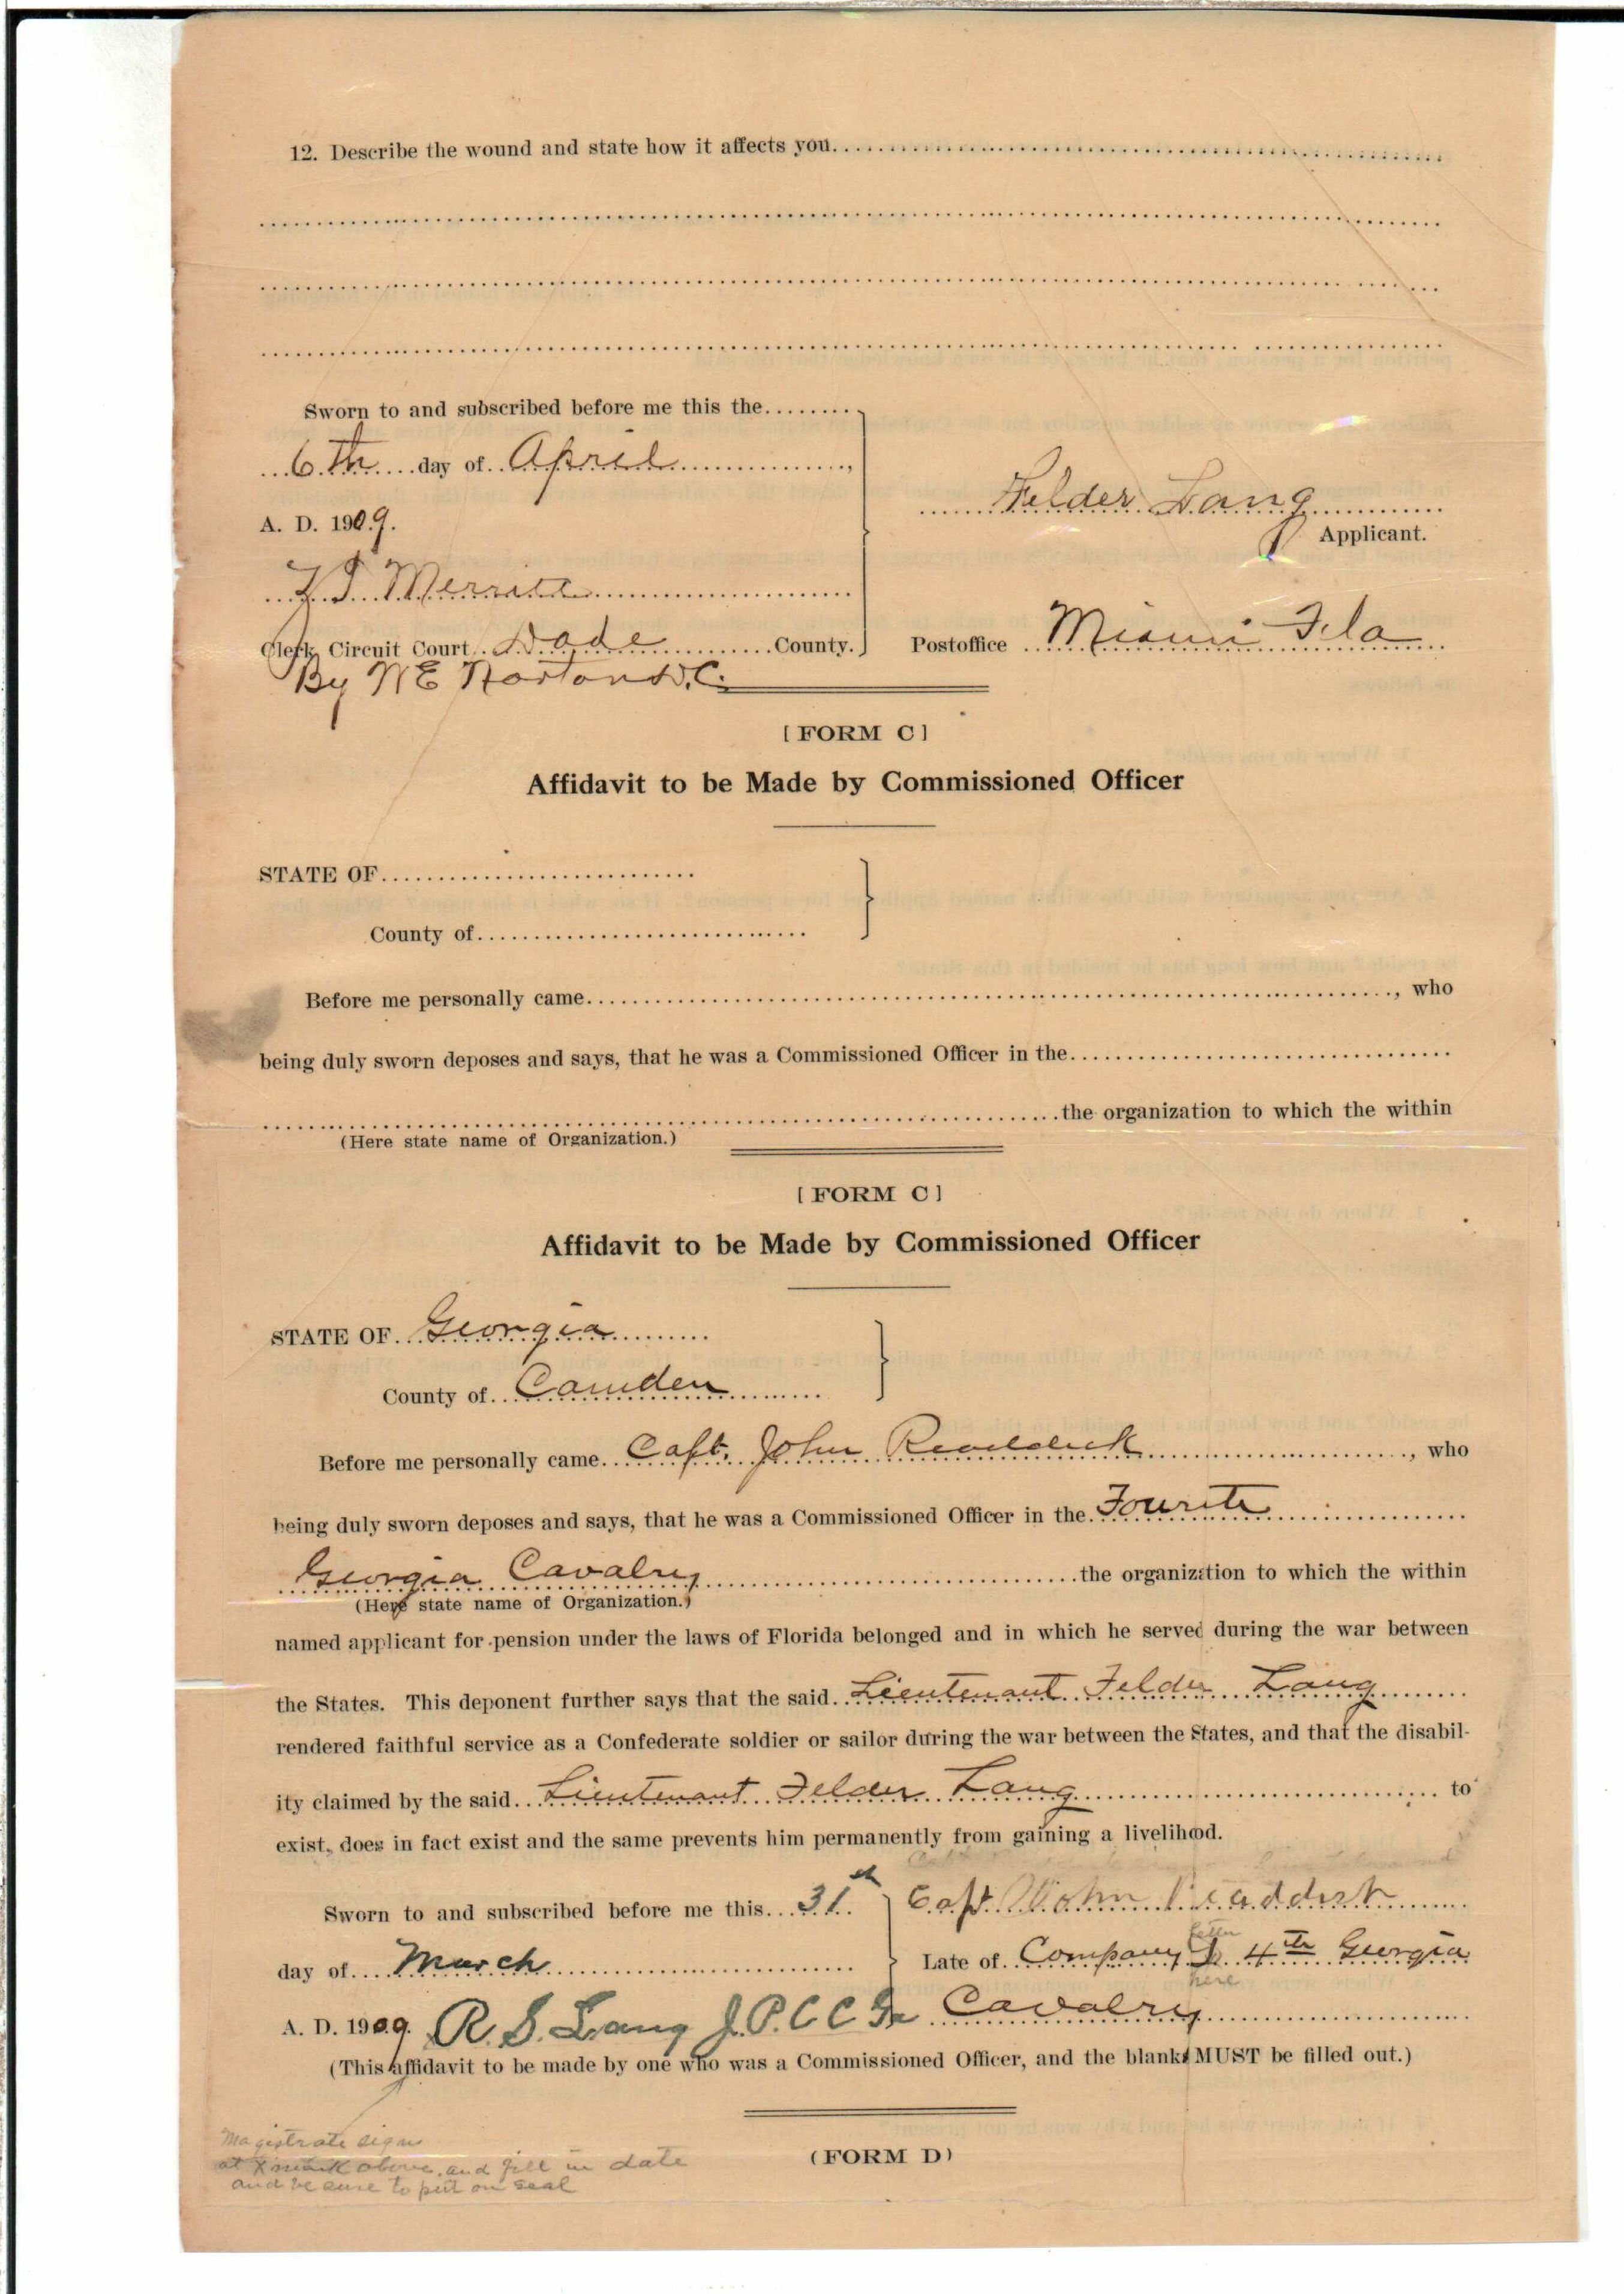 12. Describe the wound and state how it affects you
Sworn to and subscribed before me this the
6th day of April
A. D. 1909.
Merritt
Clerk Circuit Court Dade County.
By W E Norton D.C.
Felder Lang
Applicant.
Postoffice Miami Fla
[FORM C]
Affidavit to be Made by Commissioned Officer
STATE OF
County of
Before me personally came , who
being duly sworn deposes and says, that he was a Commissioned Officer in the
the organization to which the within
(Here state name of Organization.)
[FORM C]
Affidavit to be Made by Commissioned Officer
STATE OF Georgia
County of Camden
Before me personally came Capt. John Readdick , who
being duly sworn deposes and says, that he was a Commissioned Officer in the Fourth
Georgia Cavalry the organization to which the within
(Here state name of Organization.)
named applicant for pension under the laws of Florida belonged and in which he served during the war between
the States. This deponent further says that the said Lieutenant Felder Lang
rendered faithful service as a Confederate soldier or sailor during the war between the States, and that the disabil-
ity claimed by the said Lieutenant Felder Lang to
exist, does in fact exist and the same prevents him permanently from gaining a livelihood.
Sworn to and subscribed before me this 31th
day of March
A. D. 1909. R. S. Lang J.P.C C Ga
Capt John Readdick
letter
Late of Company 4th Georgia
here
Cavalry
(This affidavit to be made by one who was a Commissioned Officer, and the blanks MUST be filled out.)
(FORM D)
Magistrate sign
at X mark above, and fill in date
and be sure to put on seal